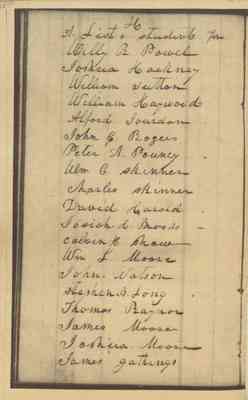 H
A List of students for
Willy R Powel
Joshua Hackney
William Sutton
William Haywood
Alford Jourdon
John C. Rogers
Peter N. Pouncy
Wm C Skinner
Charles Skinner
David Harold
Josiah d. Woods
Calvin H Snow
Wm L Moore
John Watson
Stephen D. Long
Thomas Raynor
James Moore
Joshua Moore
James gathings